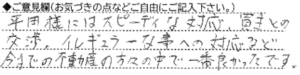 ◆ご意見欄(お気づきの点などご自由にご記入下さい。)
平田様にはスピーディな対応、買主との
交渉、イレギュラーな事への対応など
今までの不動産の方々の中で一番良かったです。